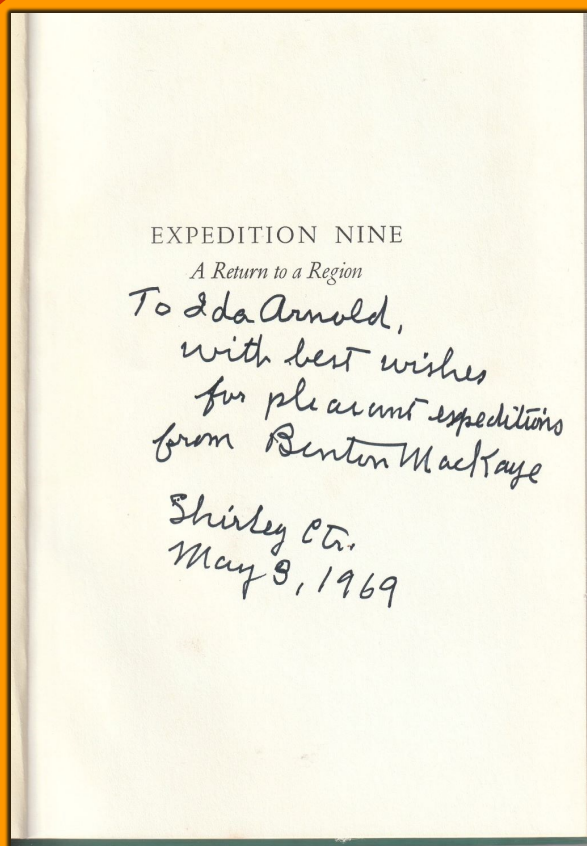 EXPEDITION NINE
A Return to a Region
To Ida Arnold,
with best wishes
for pleasant expeditions
from Benton MacKaye
Shirley Ctr.
May 3, 1969